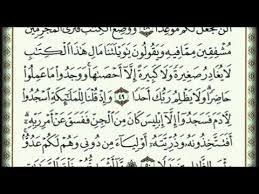 ألن نجعل لكم موعدا ٤٨ ووضع الكتب فترى المجرمين
مُشْفِقِينَ مِمَّا فِيهِ وَيَقُولُونَ يَٰوَيْلَتَنَا مَالِ هَٰذَا ٱلْكِتَٰبِ
لَا يُغَادِرُ صَغِيرَةً وَلَا كَبِيرَةً إِلَّآ أَحْصَىٰهَا وَوَجَدُوا۟ مَا عَمِلُوا۟
حَاضِرًا وَلَا يَظْلِمُ رَبُّكَ أَحَدًا ٤٩ وَإِذْ قُلْنَا لِلْمَلَٰٓئِكَةِ ٱسْجُدُوا۟
لِـَٔادَمَ فَسَجَدُوٓا۟ إِلَّآ إِبْلِيسَ كَانَ مِنَ ٱلْجِنِّ فَفَسَقَ عَنْ أَمْرِ رَبِّهِۦٓ
أَفَتَتَّخِذُونَهُۥ وَذُرِّيَّتَهُۥٓ أَوْلِيَآءَ مِن دُونِى وَهُمْ لَكُمْ عَدُوٌّۢ